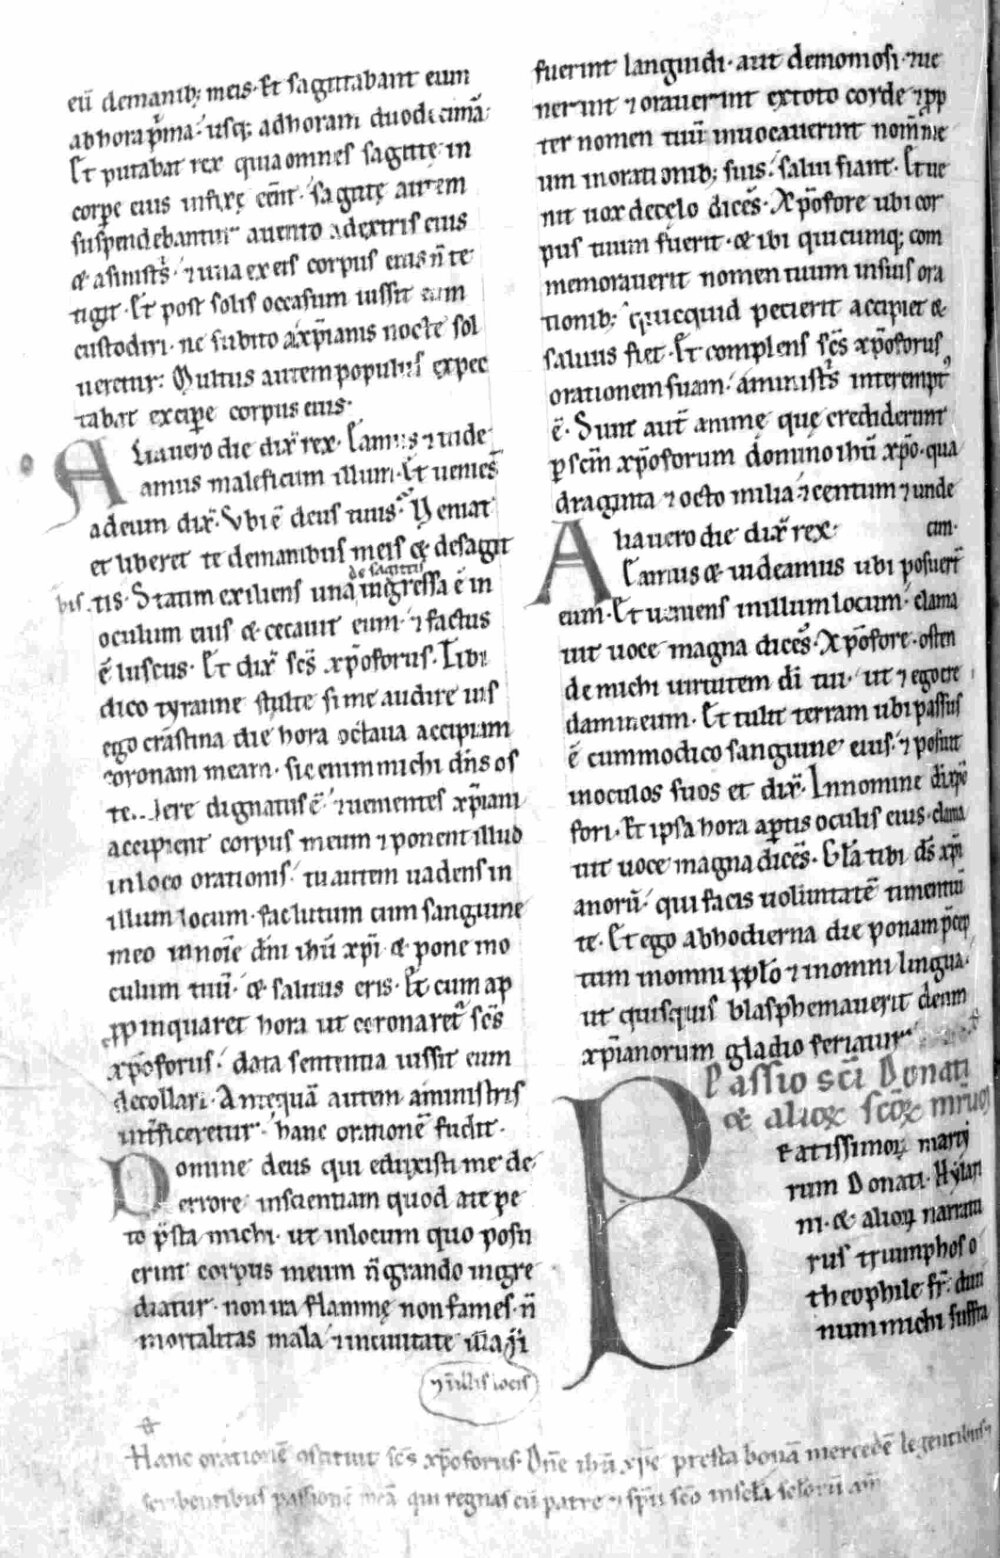 eū demanib; meis· Et sagittabant eum
abhora p̄ma· usq; adhoram duodecimā·
Et putabat rex quia omnes sagittę in
corpe eius infixę eēnt· sagittę autem
suspendebantur auento adextris eius
& asinistͥs· ⁊ una ex eis corpus eius n̄ te
tigit· Et post solis occasum iussit eum
custodiri· ne subito axp̄ianis nocte sol
ueretur· Multus autem populus expec
tabat excipe corpus eius·
Alia uero die dix̄ rex· Eamus ⁊ uide
amus maleficum illum· Et ueniens
adeum dix̄· Vbi ē deus tuus· Veniat
et liberet te demanibus meis & desagit
tis· Statim exiliens una de sagittis ingressa ē in
oculum eius & cecauit eum· ⁊ factus
ē luscus· Et dix̄ scs̄ xp̄oforus· Tibi
dico tyranne stulte si me audire uis
ego crastina die hora octaua accipiam
coronam meam· sic enim michi dn̄s os
te..dere dignatus ē· ⁊ uenientes xp̄iani
accipient corpus meum ⁊ ponent illud
inloco orationis· tu autem uadens in
illum locum· fac lutum cum sanguine
meo innoīe dn̄i ihū xp̄i & pone ino
culum tuū· & saluus eris· Et cum ap
ꝓpinquaret hora ut coronaret᷑ scs̄
xp̄oforus· data sententia iussit eum
decollari· Antequā autem aministris
int̄ficeretur· hanc orationē fudit·
Domine deus qui eduxisti me de
errore inscientiam quod a te pe
to p̄sta michi· ut inlocum quo posu
erint corpus meum n̄ grando ingre
diatur· non ira flammę non fames· n̄
mortalitas mala· ⁊ inciuitate
⁊ inillis locis
fuerint languidi· aut demoniosi· ⁊ ue
nerint ⁊ orauerint extoto corde ⁊ ꝓp
ter nomen tuū inuocauerint nom̄ me
um inorationib; suis· salui fiant· Et ue
nit uox decęlo dicēs· Xp̄ofore ubi cor
pus tuum fuerit· & ibi quicumq; com
memorauerit nomen tuum insuis ora
tionib; quicquid pecierit accipiet &
saluus fiet· Et complens scs̄ xp̄oforus
orationem suam· aministͥs interempt᷒
ē· Sunt aut̄ animę quę crediderunt
ꝑ scm̄ xp̄oforum domino ihū xp̄o· qua
draginta ⁊ octo milia· ⁊ centum ⁊ unde
cim·
Alia uero die dix̄ rex·
Eamus & uideamus ubi posuer̄t
eum· Et ueniens inillum locum· clama
uit uoce magna dicēs· Xp̄ofore· osten
de michi uirtutem dī tui· ut ⁊ ego cre
dam ineum· Et tulit terram ubi passus
ē cum modico sanguine eius· ⁊ posuit
inoculos suos et dix̄· Innomine dī xp̄o
fori· Et ipsa hora aptis oculis eius· clama
uit uoce magna dicēs· Gła tibi ds̄ xp̄i
anorū· qui facis uoluntatē timentiū
te· Et ego abhodierna die ponam p̄cep
tum inomni pp̄lo ⁊ inomni lingua·
ut quisquis blasphemauerit deum
xp̄ianorum gladio feriatur·
Passio sc̄i Donati
& alioꝝ sc̄oꝝ mr̄um
Beatissimoꝝ marty
rum Donati· Hylari
ni· & alioꝝ narratu
rus triumphos o
theophile fr̄· diui
num michi suffra
Hanc orationē scs̄ xp̄oforus· Dn̄e ihū xp̄e presta bonā mercedē legentibus ⁊
scribentibus passionē meā qui regnas cū patre ⁊ sp̄u sc̄o insc̄la sc̄lorū am̄